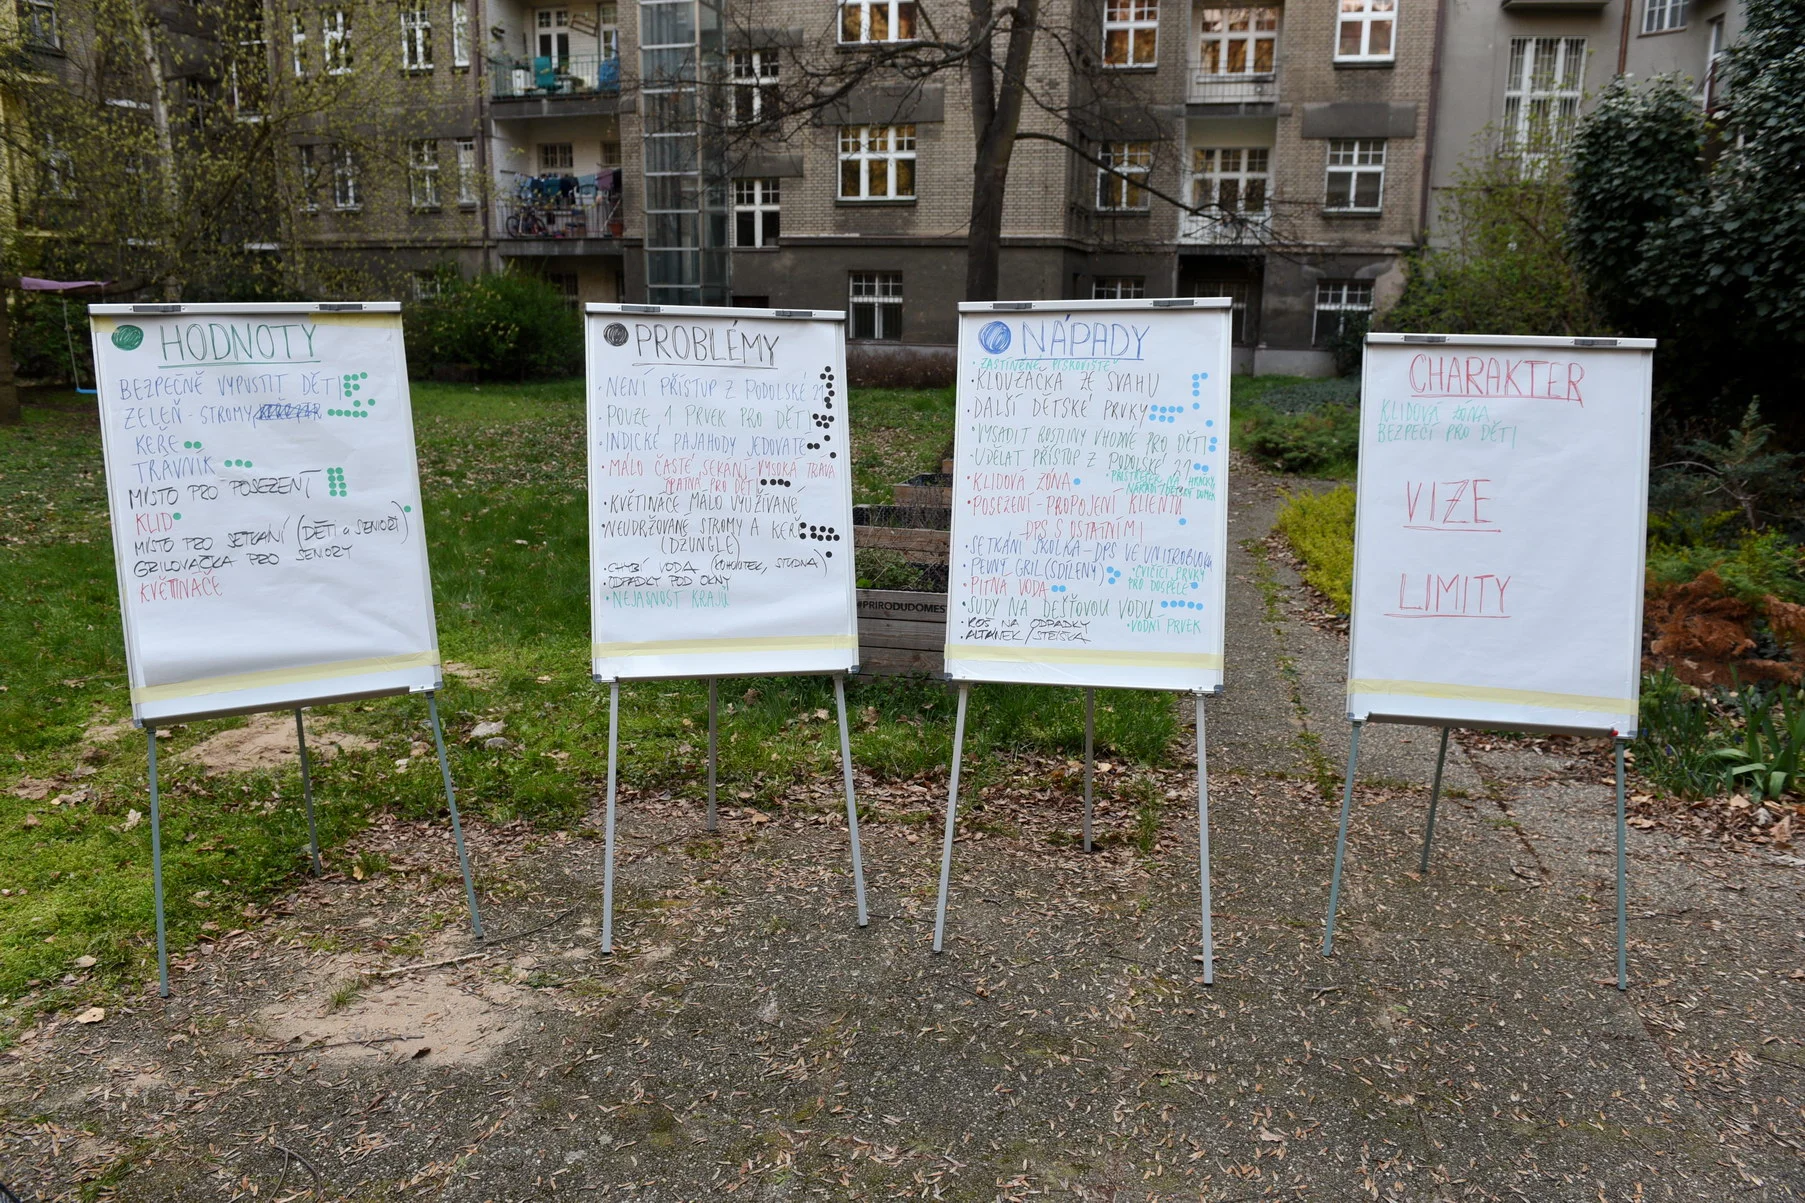 HODNOTY
BEZPEČNĚ VYPUSTIT DĚTI
ZELEŇ - STROMY
KEŘE
TRÁVNÍK
MÍSTO PRO POSEZENÍ
KLID
MÍSTO PRO SETKÁNÍ (DĚTI a SENIOŘI)
GRILOVAČKA PRO SENIORY
KVĚTINÁČE
PROBLÉMY
• NENÍ PŘÍSTUP Z PODOLSKÉ 21
• POUZE 1 PRVEK PRO DĚTI
• INDICKÉ PAJAHODY JEDOVATÉ
• MÁLO ČASTÉ SEKÁNÍ - VYSOKÁ TRÁVA
ŠPATNÁ PRO DĚTI
• KVĚTINÁČE MÁLO VYUŽÍVANÉ
• NEUDRŽOVANÉ STROMY A KEŘE
(DŽUNGLE)
• CHYBÍ VODA (KOHOUTEK, STUDNA)
• ODPADKY POD OKNY
• NEJASNOST KRAJŮ
#PRIRODUDOMES
NÁPADY
ZASTÍNĚNÉ PÍSKOVIŠTĚ
• KLOUZAČKA ZE SVAHU
• DALŠÍ DĚTSKÉ PRVKY
• VYSADIT ROSTLINY VHODNÉ PRO DĚTI
• UDĚLAT PŘÍSTUP Z PODOLSKÉ 21
• KLIDOVÁ ZÓNA
• PŘÍSTŘEŠEK NA HRAČKY,
NÁŘADÍ / DĚTSKÝ DOMEK
• POSEZENÍ - PROPOJENÍ KLIENTŮ
- DPS S OSTATNÍMI
• SETKÁNÍ ŠKOLKA - DPS VE VNITROBLOKU
• PEVNÝ GRIL (SDÍLENÝ)
• CVIČÍCÍ PRVKY
PRO DOSPĚLÉ
• PITNÁ VODA
• SUDY NA DEŠŤOVOU VODU
• VODNÍ PRVEK
• KOŠ NA ODPADKY
• ALTÁNEK /
CHARAKTER
KLIDOVÁ ZÓNA
BEZPEČÍ PRO DĚTI
VIZE
LIMITY